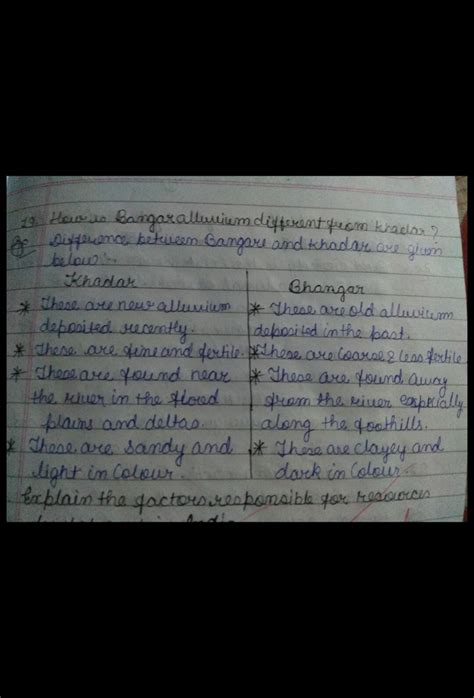 19. How is Bangar alluvium different from Khadar?
Difference between Bangare and Khadar are given
below:-
Khadar
* These are new alluvium
deposited recently.
* These are fine and fertile.
* These are found near
the river in the flood
plains and deltas.
* These are sandy and
light in Colour.
Bhangar
* These are old alluvium
deposited in the past.
* These are Coarse & less fertile
* These are found away
from the river especially
along the foothills.
* These are clayey and
dark in Colour.
Explain the factors responsible for resources